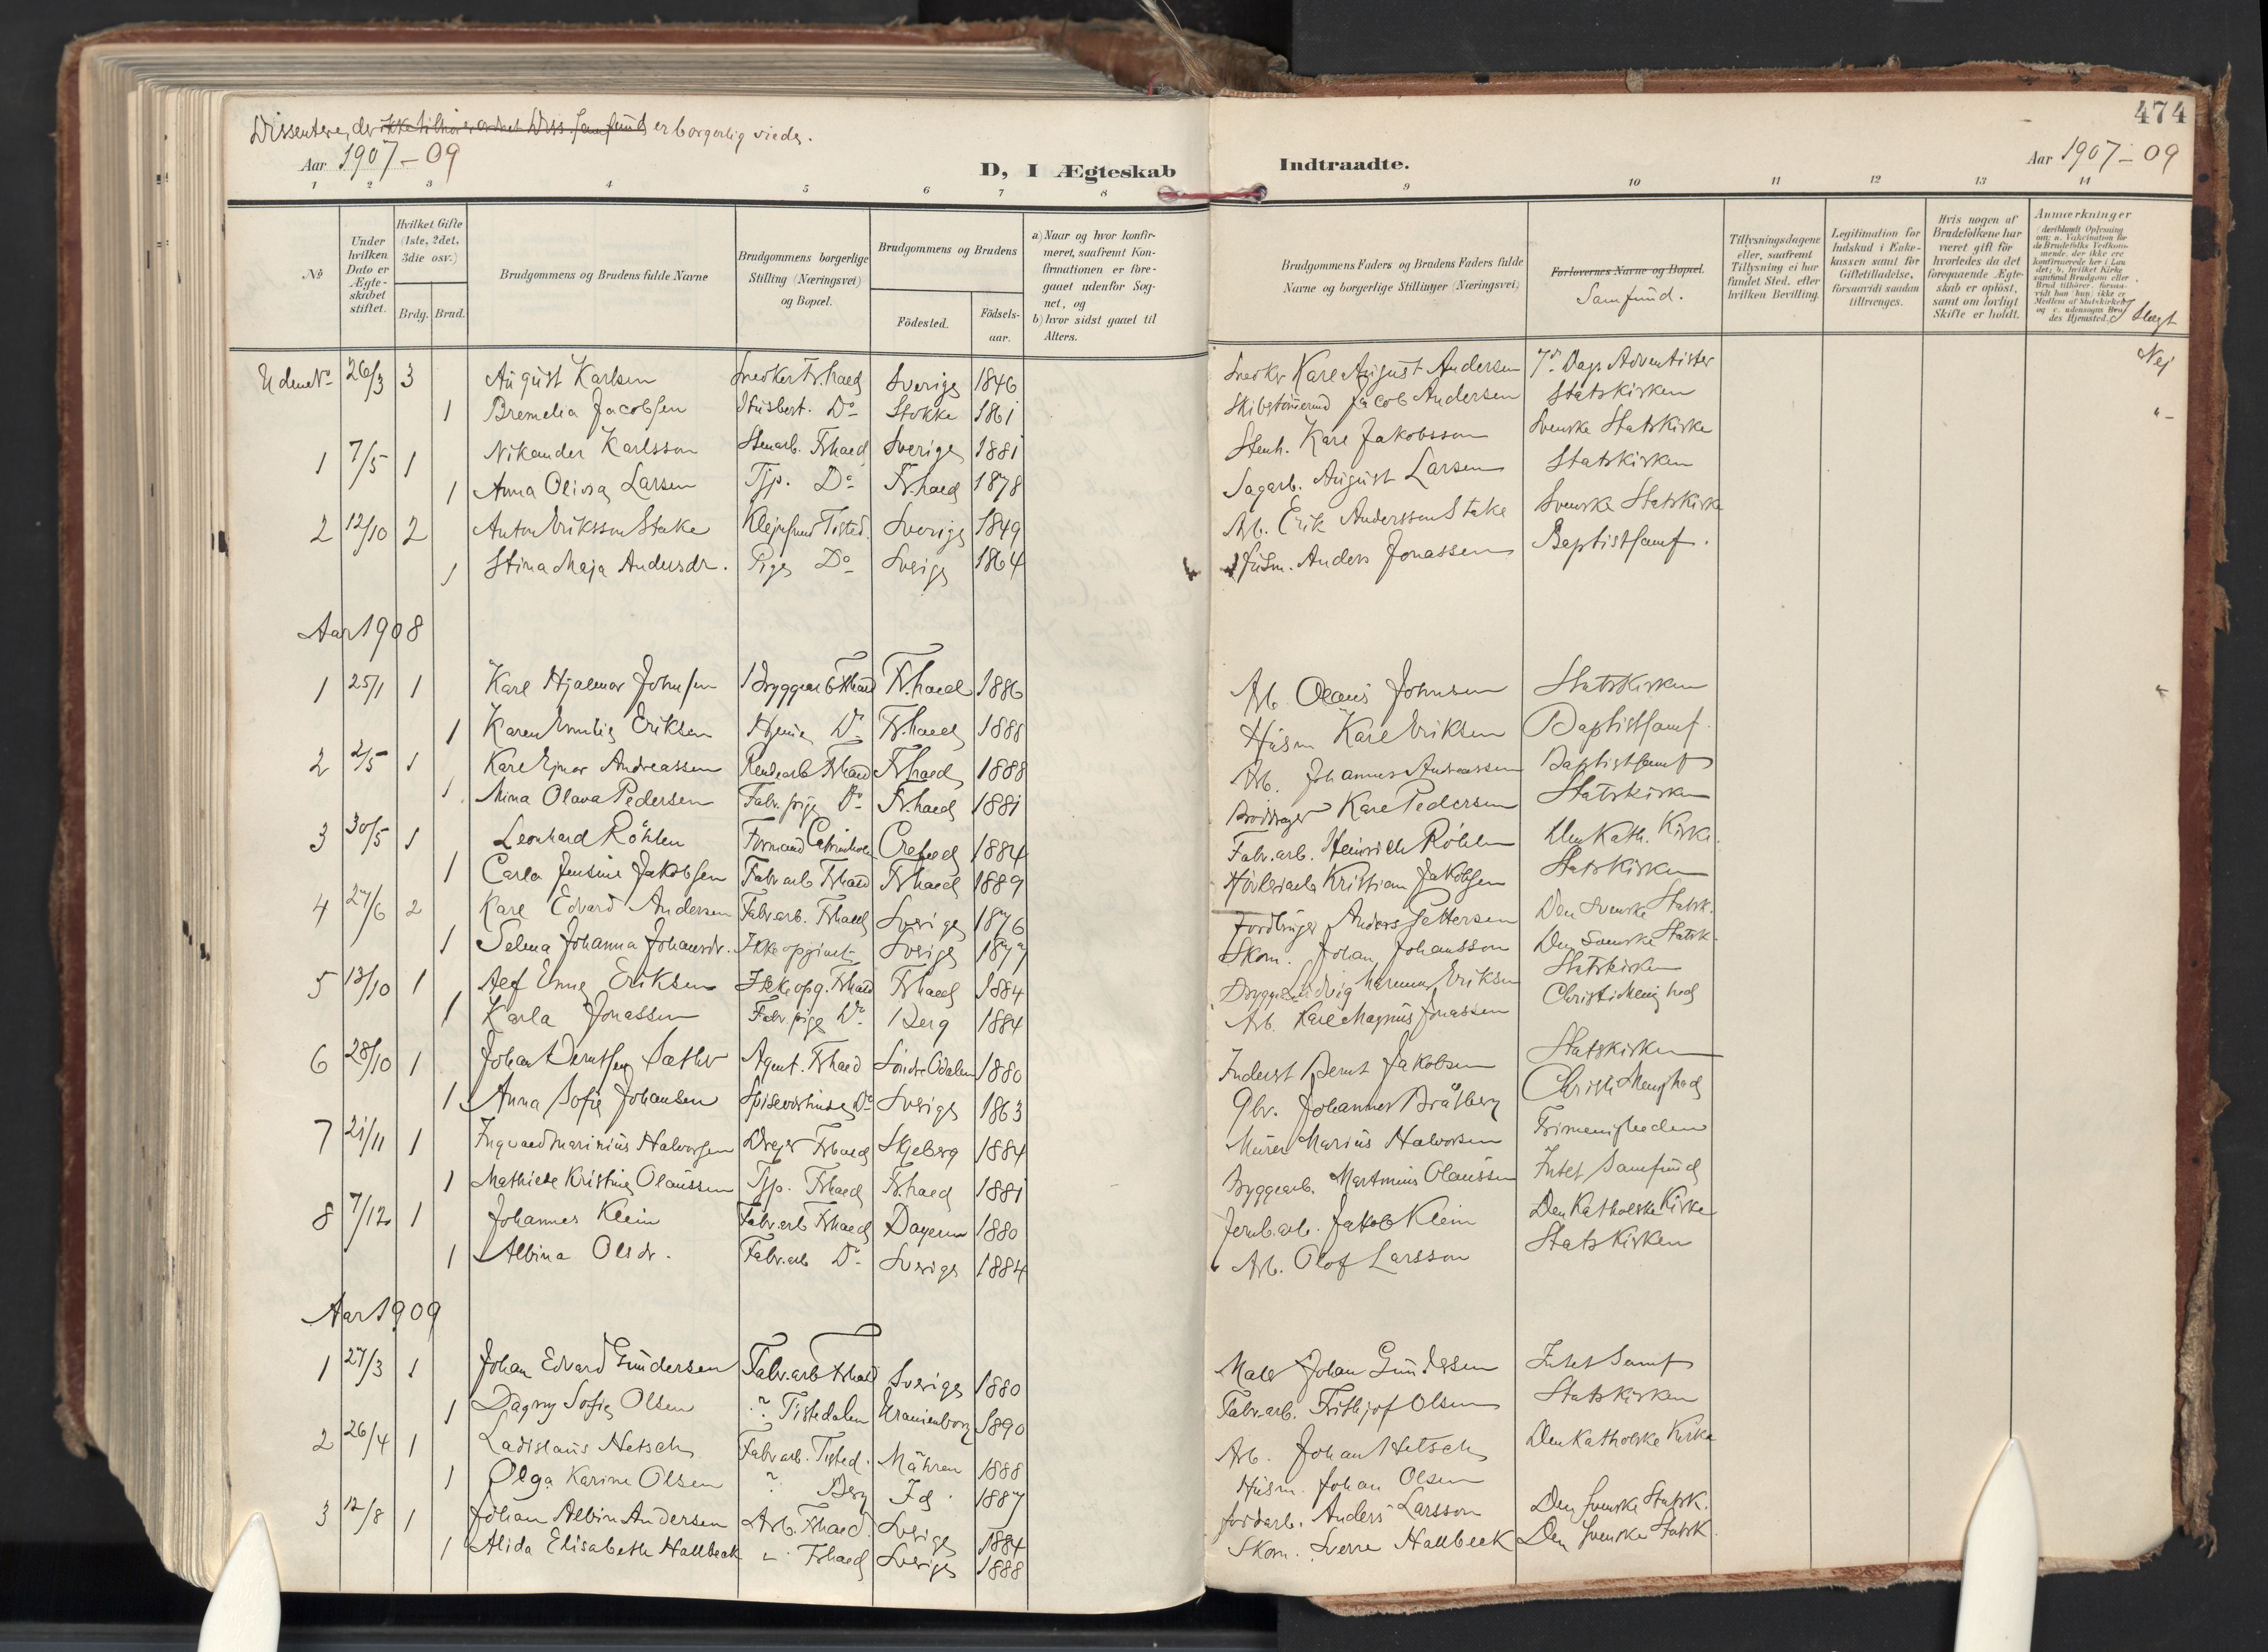 Dissentere, der ikke tilhører ordnet Diss. Samfund er borgerlig viede.
474
Aar 1907-09
D, I Ægteskab Indtraadte.
Aar 1907-09
1 2 3 4 5 6 7 8 9 10 11 12 13 14
No
Under hvilken Dato er Ægteskabet stiftet.
Hvilket Gifte (1ste, 2det, 3die osv.)
Brdg. Brud.
Brudgommens og Brudens fulde Navne
Brudgommens borgerlige Stilling (Næringsvei) og Bopæl.
Brudgommens og Brudens
Födested. Födsels-aar.
a) Naar og hvor konfirmeret, saafremt Konfirmationen er foregaaet udenfor Sognet, og
b) hvor sidst gaaet til Alters.
Brudgommens Faders og Brudens Faders fulde Navne og borgerlige Stillinger (Næringsvei)
Forlovernes Navne og Bopæl.
Samfund.
Tillysningsdagene eller, saafremt Tillysning ei har fundet Sted, efter hvilken Bevilling.
Legitimation for Indskud i Enkekassen samt for Giftetilladelse, forsaavidt saadan tiltrænges.
Hvis nogen af Brudefolkene har været gift för hvorledes da det foregaaende Ægteskab er oplöst, samt om lovligt Skifte er holdt.
Anmærkninger (deriblandt Oplysning om: a. Vakcination for de Brudefolks Vedkommende, der ikke ere konfirmerede her i Landet; b. hvilket Kirkesamfund Brudgom eller Brud tilhörer, forsaavidt han (hun) ikke er Medlem af Statskirken, og c. udensogns Brudes Hjemsted.)
I Slegt
Uden No 26/3 3 August Karlsen Snedker Fr.hald Sverige 1846 Snedker Karl August Andersen 7de Dags Adventister Nej
1 Bremelia Jacobsen Husbest. Do Stokke 1861 Skibstømmermd Jacob Andersen Statskirken "-
1 7/5 1 Nikander Karlsson Stenarb. Frhald Sverige 1881 Stenh. Karl Jakobsson Svenske Statskirke
1 Anna Olivia Larsen Tjp. Do Fr.hald 1878 Sagarb. August Larsen Statskirken
2 12/10 2 Anton Eriksson Stake Tisted. Sverige 1849 Arb. Erik Andersson Stake Svenske Statskirke
1 Stina Maja Andersdr. Pige Do Sverige 1864 Husm. Anders Jonassen Baptistsamf.
Aar 1908
1 25/1 1 Karl Hjalmar Johnsen Bryggearb Frhald Fr.hald 1886 Arb. Olaus Johnsen Statskirken
1 Karen Emilie Eriksen Hjemme Do Fr.hald 1888 Husm Karl Eriksen Baptistsamf.
2 2/5 1 Karl Ejnar Andreassen Frhald Frhald 1888 Arb. Johannes Andreassen Baptistsamf
1 Mina Olava Pedersen Fabr.pige Do Fr.hald 1881 Karl Pedersen Statskirken
3 30/5 1 Leonhard Röhlen Formand Catrineholm Crefeld 1884 Fabr.arb. Heinrich Röhlen Den Kath. Kirke.
1 Carla Jensine Jakobsen Fabr arb Frhald Frhald 1889 Høvleriarb Kristian Jakobsen Statskirken
4 27/6 2 Karl Edvard Andersen Fabr.arb. Frhald Sverige 1876 Jordbruger Anders Pettersen Den Svenske Statsk.
1 Selma Johanna Johansdr. Ikke opgivet Sverige 1877 Skom. Johan Johansson Den Svenske Statsk.
5 13/10 1 Alf Emil Eriksen Ikke opg. Frhald Frhald 1884 Ludvig Eriksen Statskirken
1 Karla Jonassen Fabr.pige Do Berg 1884 Arb. Karl Magnus Jonassen Christi Menighed
6 28/10 1 Johan Berntsen Sæther Agent. Frhald Søndre Odalen 1880 Inderst Bernt Jakobsen Statskirken
1 Anna Sofie Johansen Spiseværtinde Do Sverige 1863 Gbr. Johannes Bråtberg Christi Menighed
7 21/11 1 Ingvald Marinius Halvorsen Drejer Frhald Skjeberg 1884 Murer Marius Halvorsen Frimenigheden
1 Mathilde Kristine Olaussen Tjp. Frhald Fr.hald 1881 Byggearb. Martinius Olaussen Intet Samfund
8 7/12 1 Johannes Klein Fabr.arb Frhald Bayern 1880 Jernb.arb. Jakob Klein Den Katholske Kirke
1 Albina Olsdr. Fabr.arb Do Sverige 1884 Arb. Olof Larsson Statskirken
Aar 1909
1 27/3 1 Johan Edvard Gundersen Fabr.arb Frhald Sverige 1880 Maler Johan Gundersen Intet Samf
1 Dagny Sofie Olsen ? Tistedalen Uranienborg 1890 Fabr.arb. Frithjof Olsen Statskirken
2 26/4 1 Ladislaus Hetsch Fabr.arb. Tisted. Mähren 1888 Arb. Johan Hetsch Den Katholske Kirke
1 Olga Karine Olsen ? Berg Id. 1887 Husm. Johan Olsen
3 12/8 1 Johan Albin Andersen Arb. Frhald. Sverige 1884 Jordarb. Anders Larsson Den Svenske Statsk.
1 Alida Elisabeth Hallbeck " Frhald Sverige 1888 Skom. Sverre Hallbeck Den Svenske Statsk.